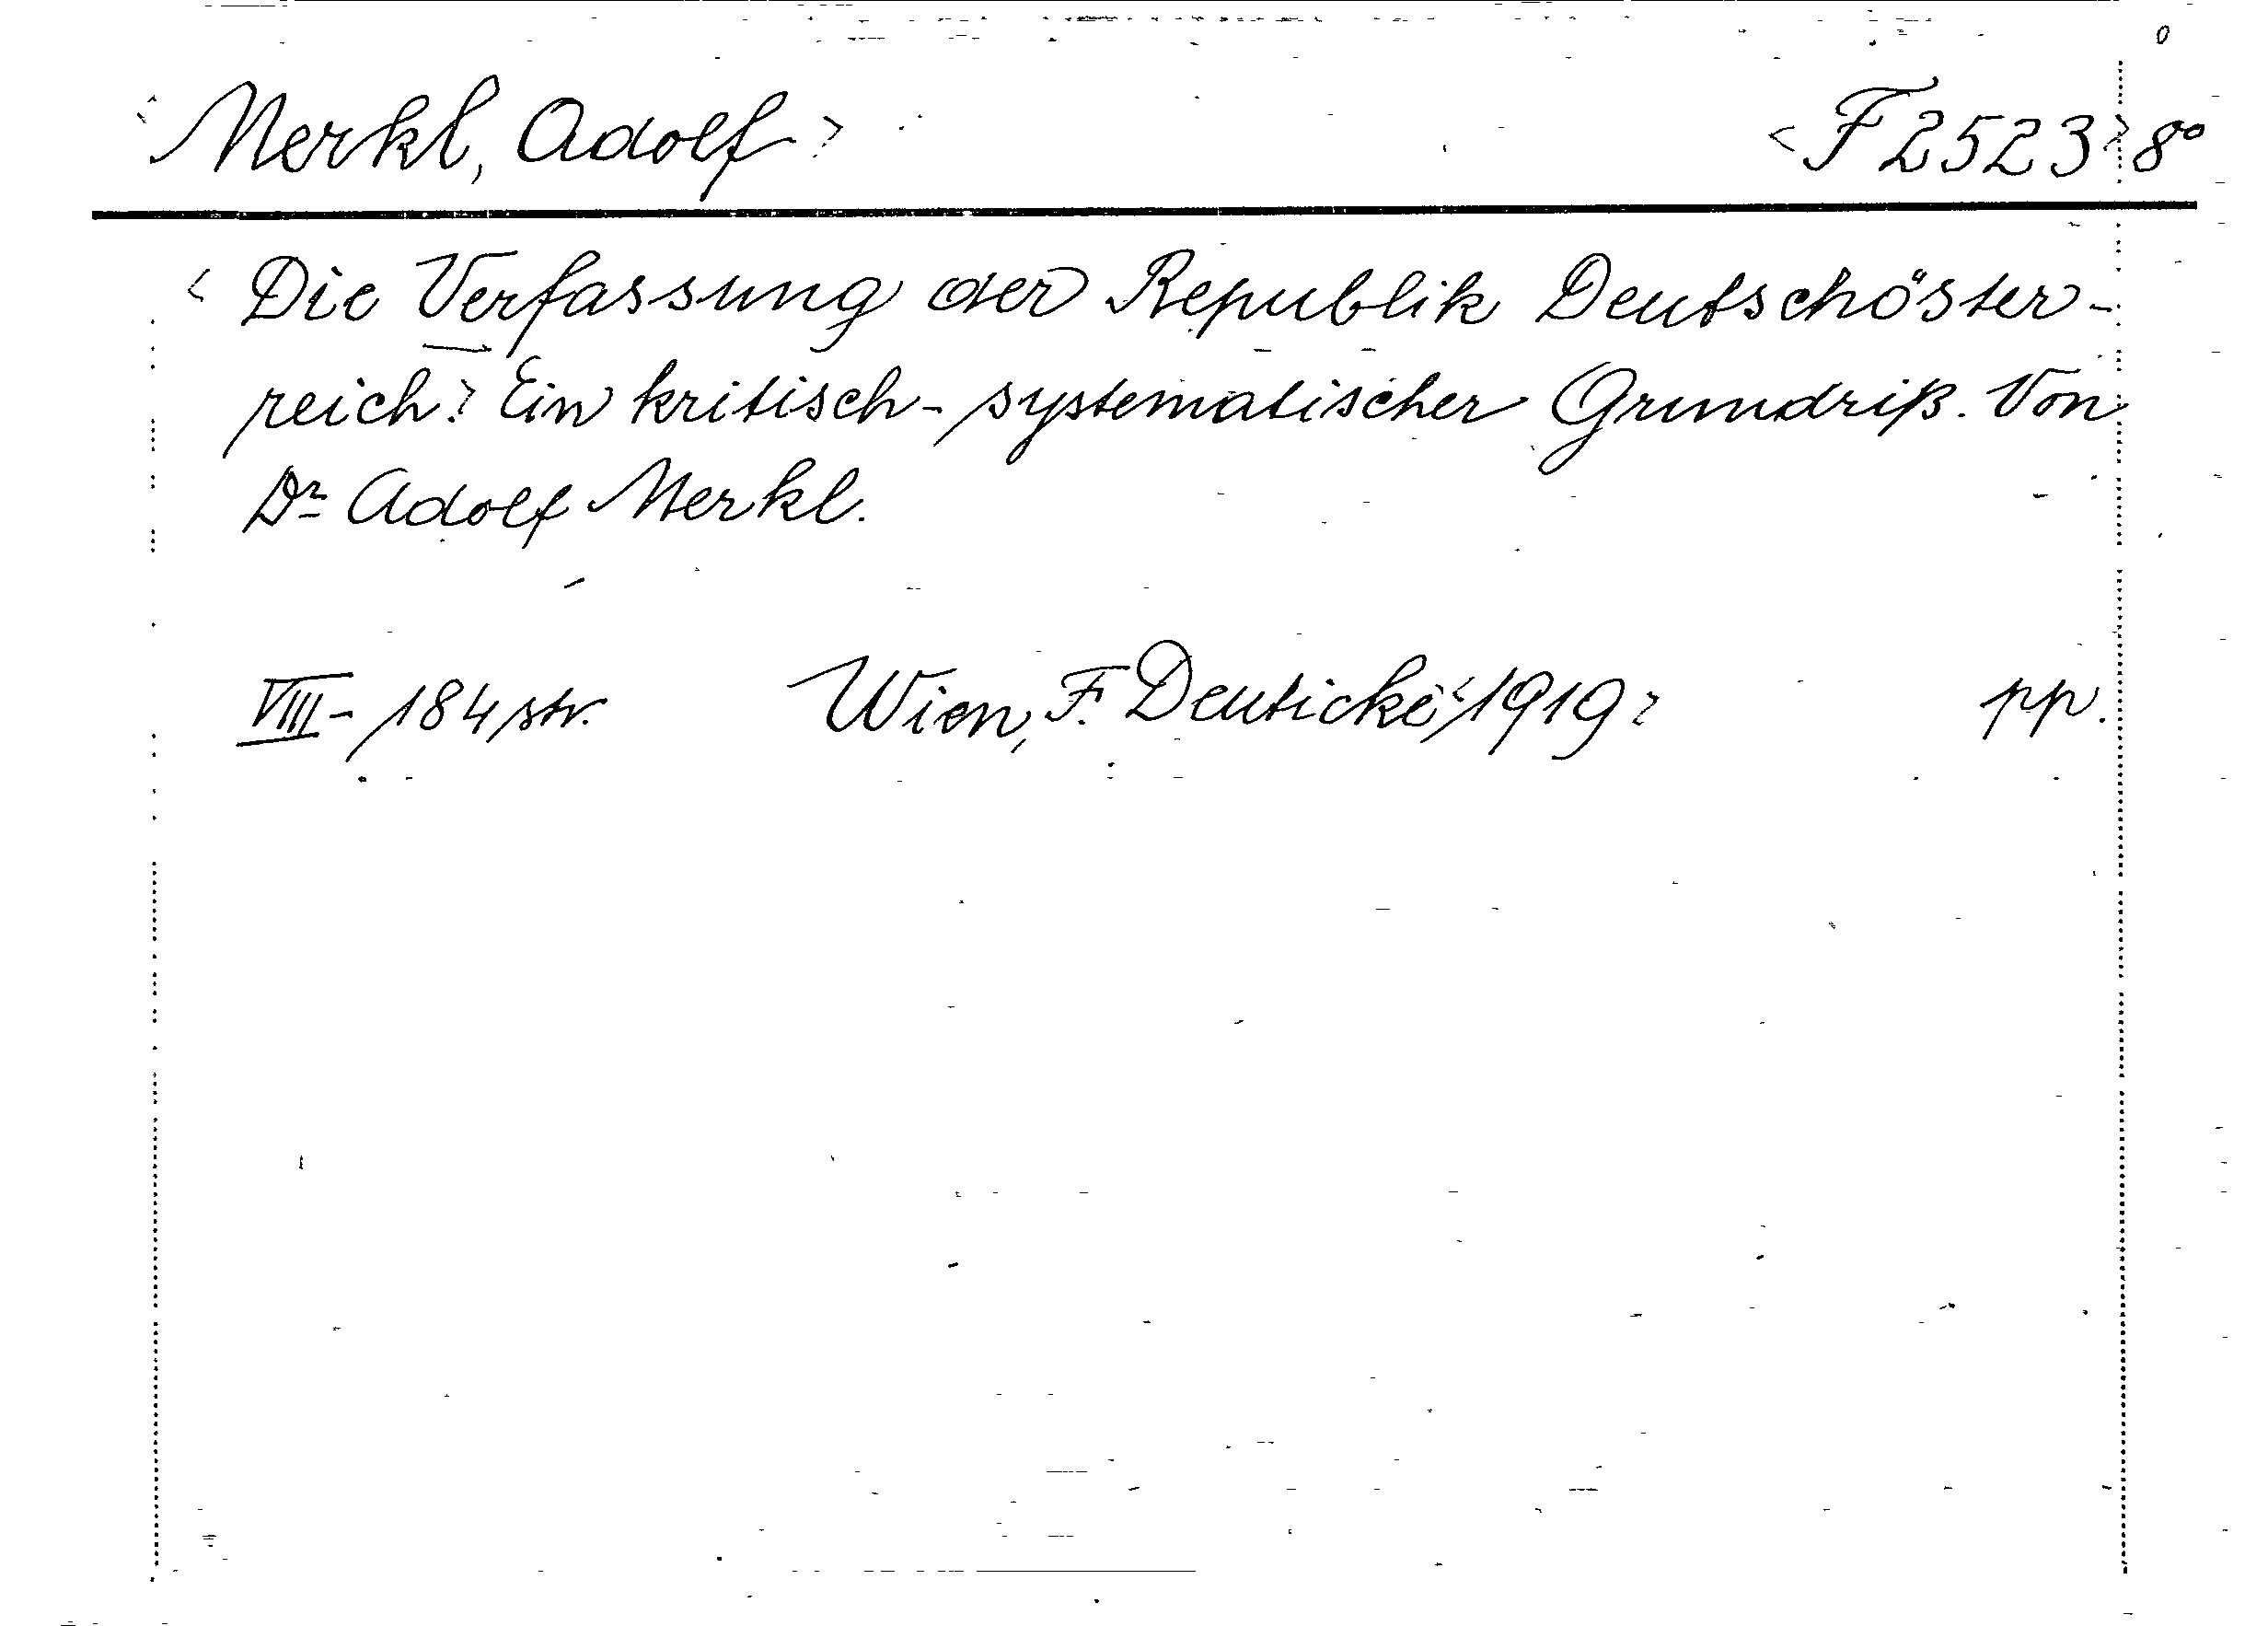 <Merkl, Adolf> <F 2523> 8°
<Die Verfassung der Republik Deutschöster-
reich.> Ein kritisch-systematischer Grundriß. Von
Dr Adolf Merkl.
VIII-184 str. Wien, F. Deuticke, <1919> pp.